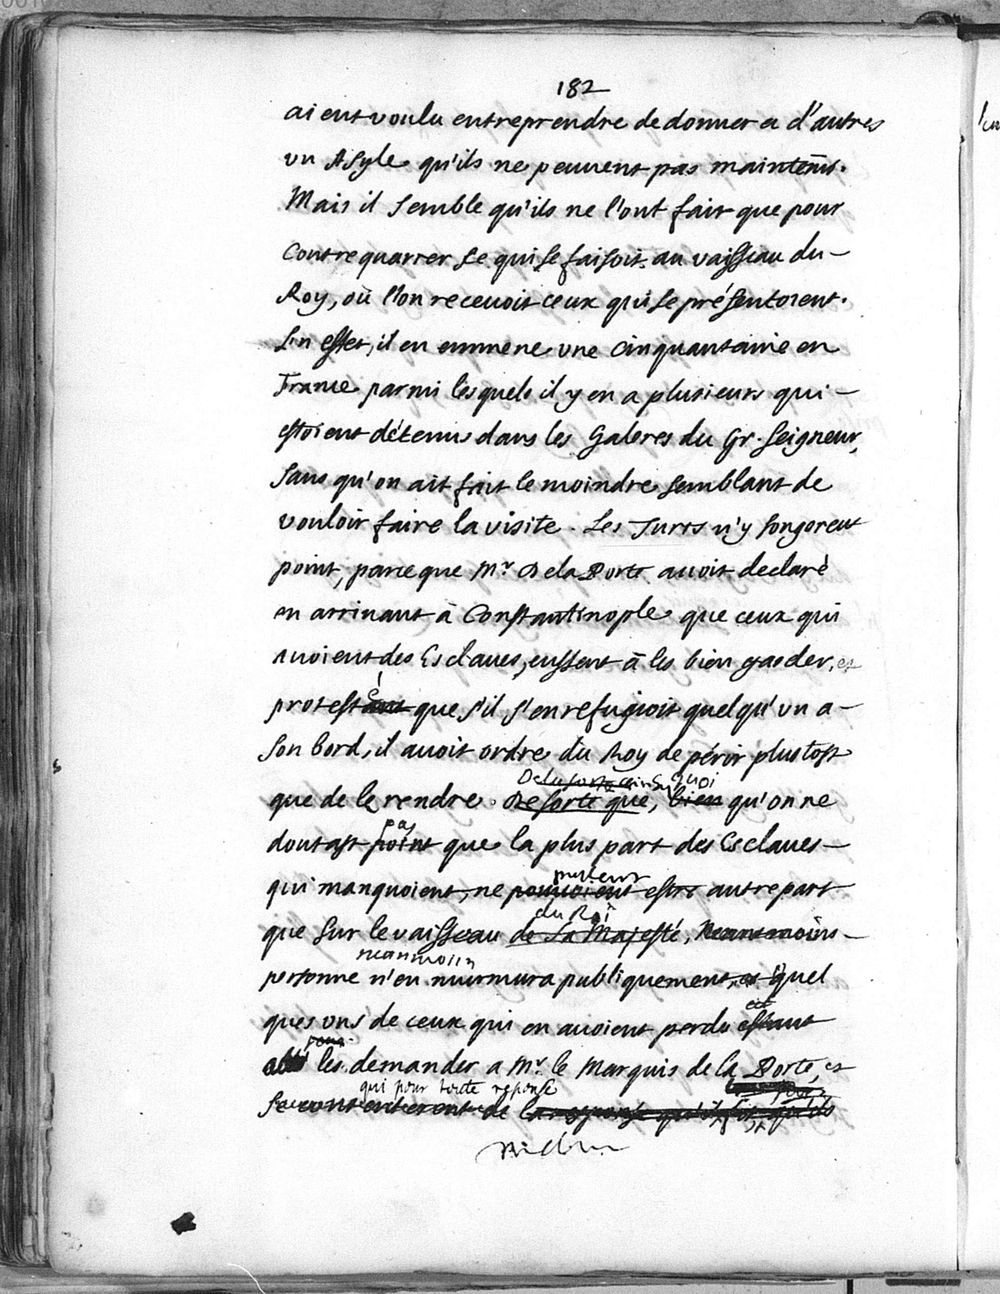 182
aient voulu entreprendre de donner a d'autres
vn Asyle qu'ils ne peuuent pas maintenir.
Mais il semble qu'ils ne l'ont fait que pour
contrequarrer ce qui se faisoit au vaisseau du
Roy, où l'on receuoit ceux qui se présentoient.
En effet, il en emmene vne cinquantaine en
France parmi lesquels il y en a plusieurs qui
estoient détenus dans les Galeres du Gr. Seigneur,
sans qu'on ait fait le moindre semblant de
vouloir faire la visite. Les Turcs n'y songerent
point, parce que Mr. De la Porte auoit declaré
en arriuant à Constantinople que ceux qui
auoient des Esclaues, eussent à les bien garder, et
é
protestant que s'il s'en refugioit quelqu'vn a
son bord, il auoit ordre du Roy de périr plustost
De la sorte quoi
que de le rendre. De sorte que, bien qu'on ne
pas
doutast point que la plus part des Esclaues
qui manquoient, ne pouuoient estre autre part
du Roi
que sur le vaisseau de Sa Majesté, Neantmoins
neanmoin
personne n'en murmura publiquement, et quel
ques vns de ceux qui en auoient perdu estant
pour
allé les demander a Mr. le Marquis de la Porte, et
qui pour toute reponse
se contenterent de la reponse qu'il fit qu'ils